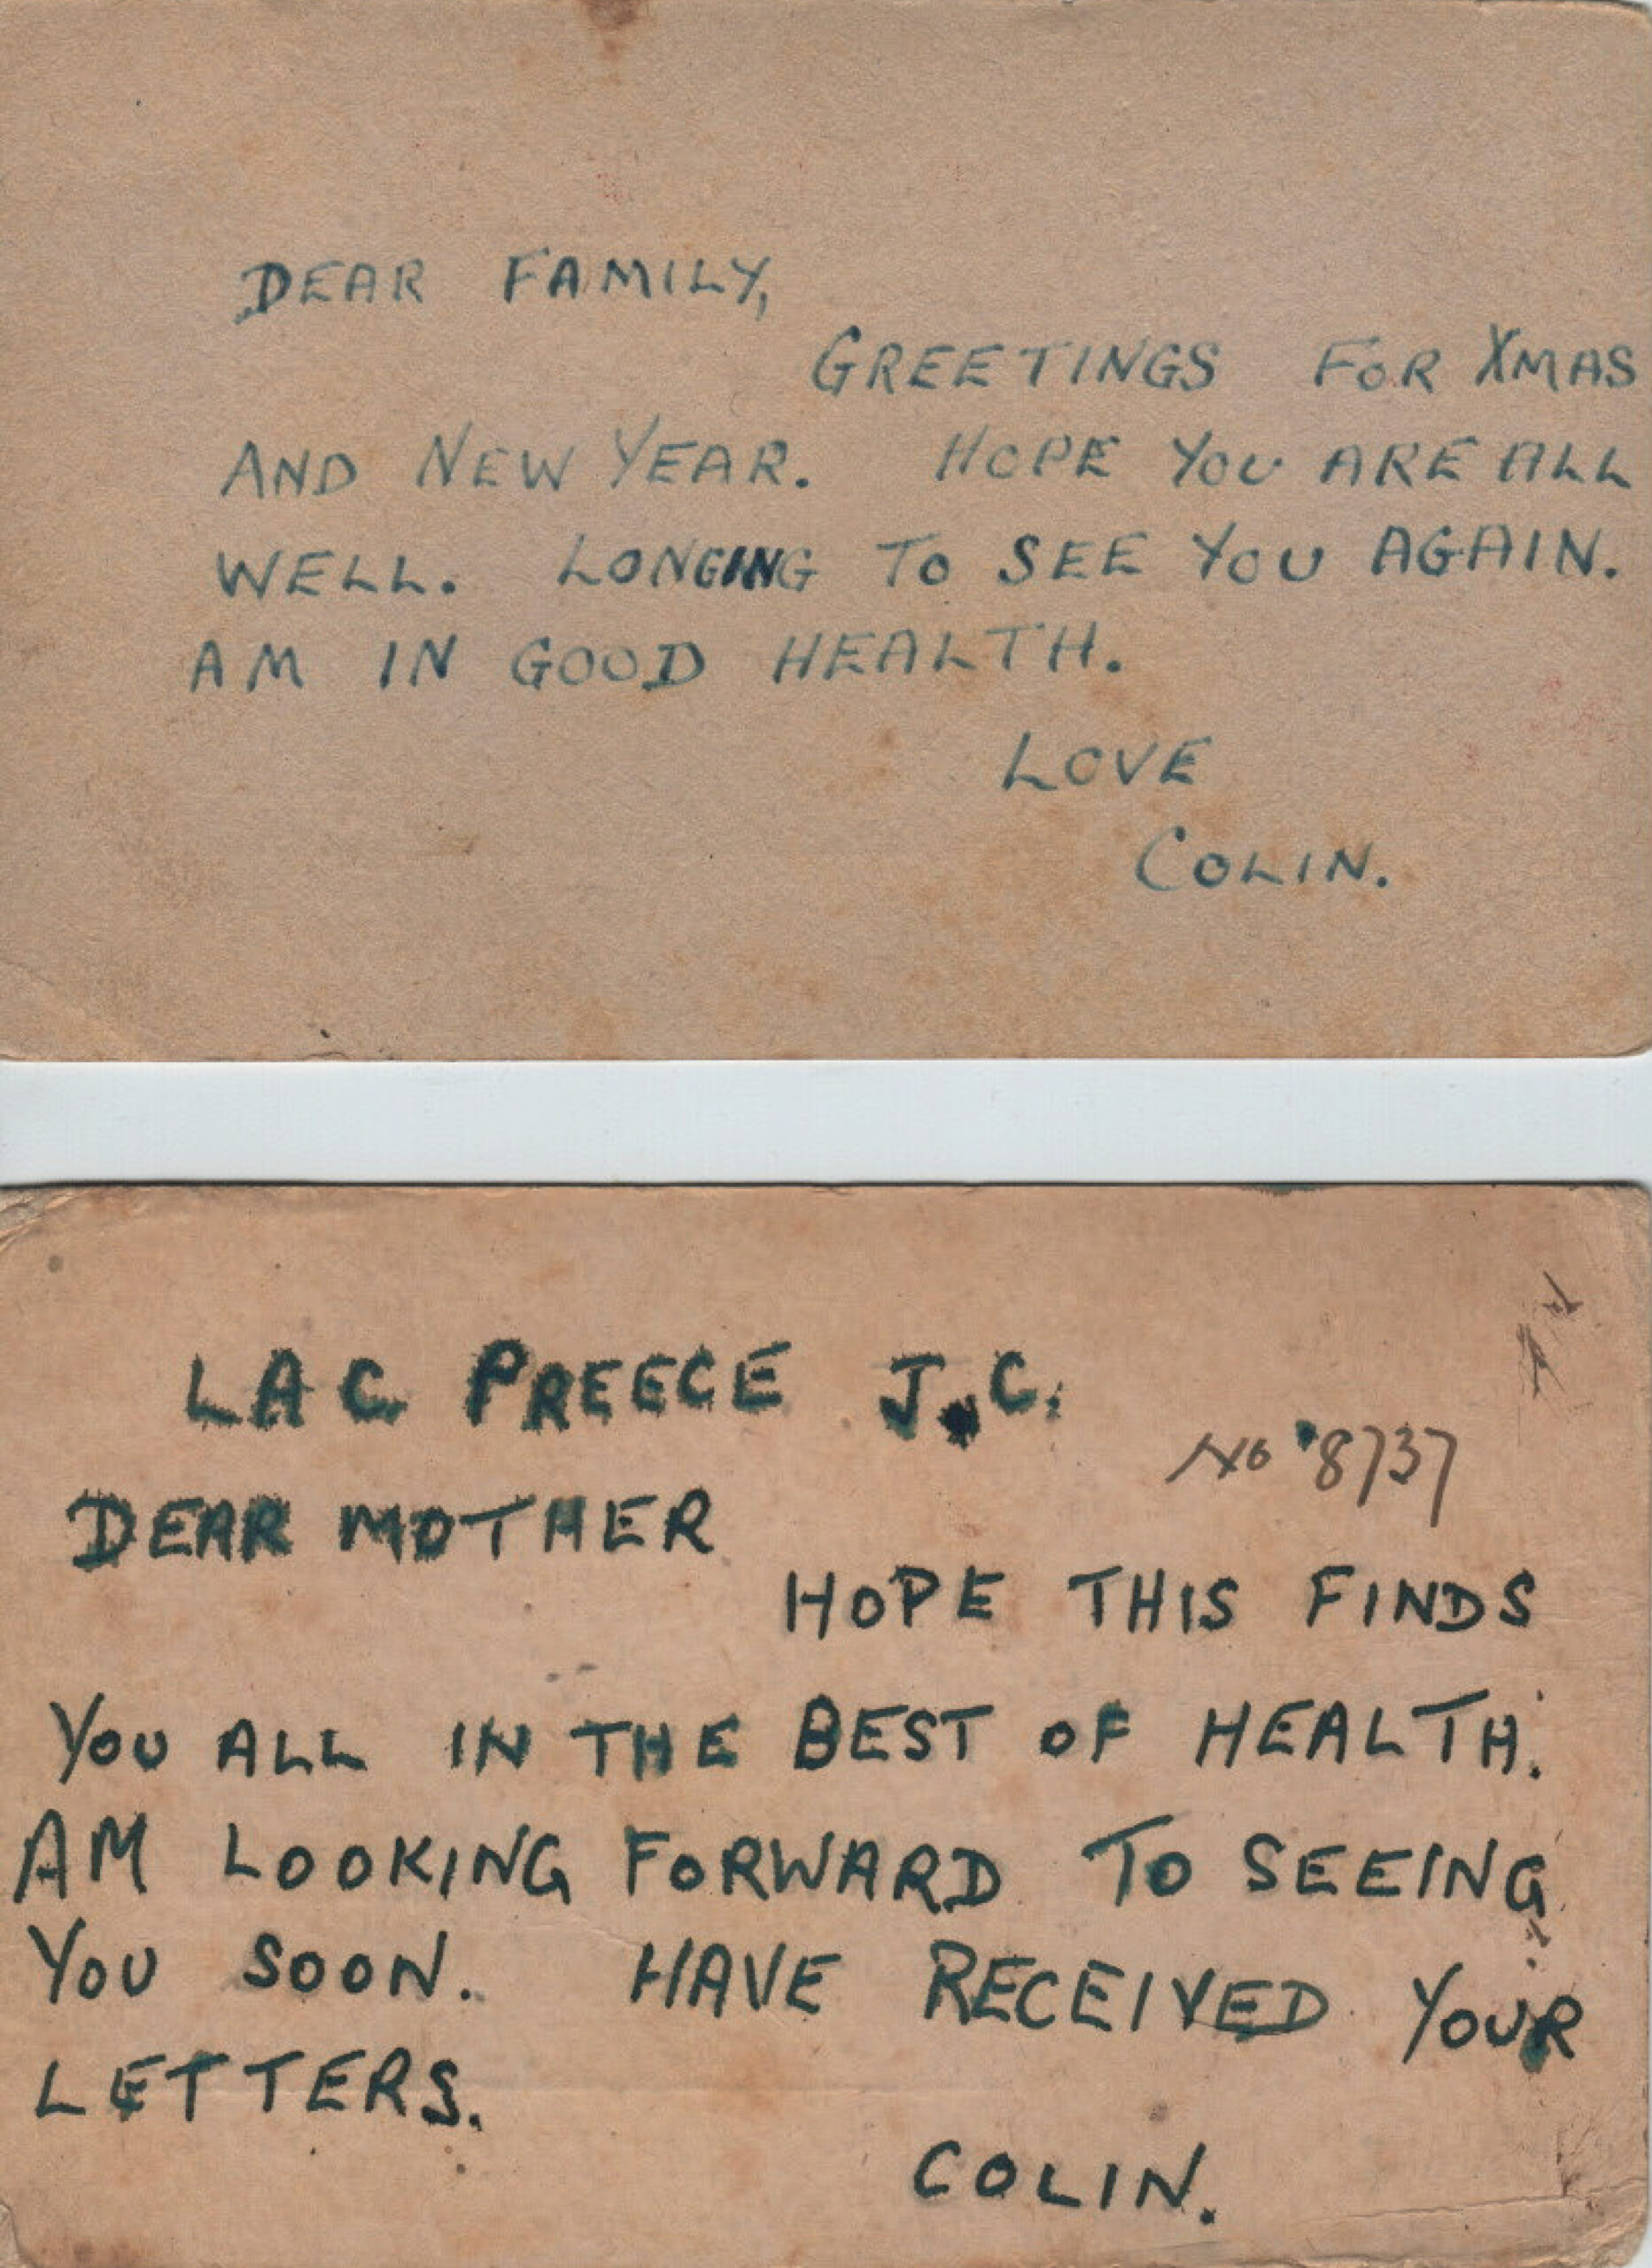 DEAR FAMILY,
GREETINGS FOR XMAS
AND NEW YEAR. HOPE YOU ARE ALL
WELL. LONGING TO SEE YOU AGAIN.
AM IN GOOD HEALTH.
LOVE
COLIN.
LAC. PREECE J.C.
No 8737
DEAR MOTHER
HOPE THIS FINDS
YOU ALL IN THE BEST OF HEALTH.
AM LOOKING FORWARD TO SEEING
YOU SOON. HAVE RECEIVED YOUR
LETTERS.
COLIN.